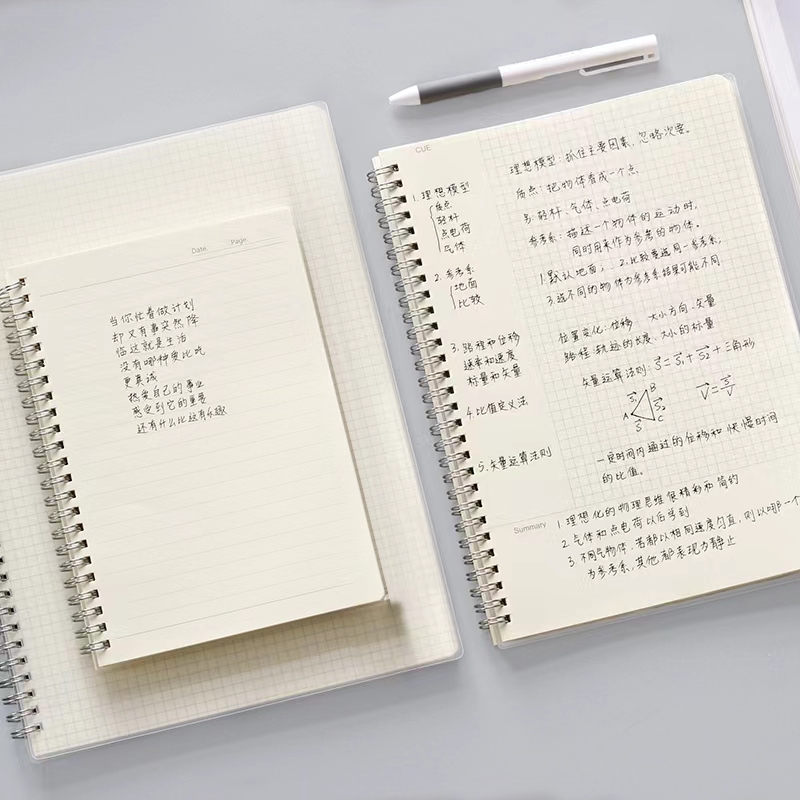 Date
Page
当你忙着做计划
却又有事突然降
临这就是生活
没有哪种度比吃
更真诚
热爱自己的事业
感受到它的重要
还有什么比这有乐趣
CUE
1.理想模型
质点
轻杆
点电荷
气体
2.参考系
地面
比较
3.路程和位移
速率和速度
标量和矢量
4.比值定义法
5.矢量运算法则
理想模型:抓住主要因素,忽略次要。
质点:把物体看成一个点
轻杆、气体、点电荷
参考系:描述一个物体的运动时,
同时用来作为参考的物体。
1.默认地面; 2.比较要选同一参考系;
3.选不同的物体为参考系结果可能不同
位置变化:位移 大小方向、矢量
路程:轨迹的长度 大小的标量
矢量运算法则:S=S1+S2+三角形
S1 B
A S2 C
S
V=S/V
一定时间内通过的位移和快慢时间
的比值。
Summary
1 理想化的物理思维很精彩和简约
2.气体和点电荷以后学到
3.不同气物体,若都以相同速度匀直,则以哪一个
为参考系,其他都表现为静止